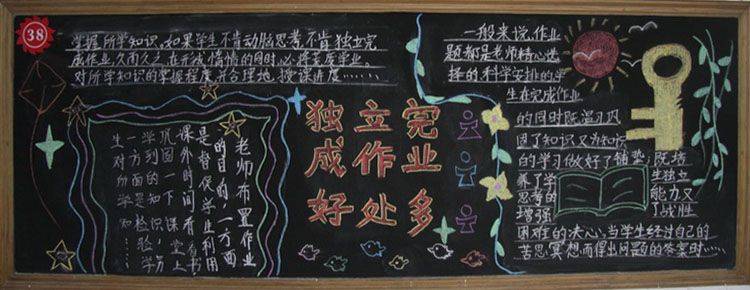 38
掌握所学知识。如果学生不肯动脑思考,不肯独立完
成作业,久而久之,在形成惰情的同时,必将荒废学业。
对所学知识的掌握程度,并合理地授课进度……
老师布置作业
的目的,一方面
是督促学生利用
课外时间看书
巩固一下课堂上
学到的知识,另
一方面是检验学
生对所学知……
独立完
成作业
好处多
一般来说,作业
题都是老师精心选
择的科学安排的,学
生在完成作业
的同时既温习巩
固了知识又为知识
的学习做好了铺垫;既培
养了学 生独立
思考的 能力又
增强 了战胜
困难的决心,当学生经过自己的
苦思冥想而得出问题的答案时……